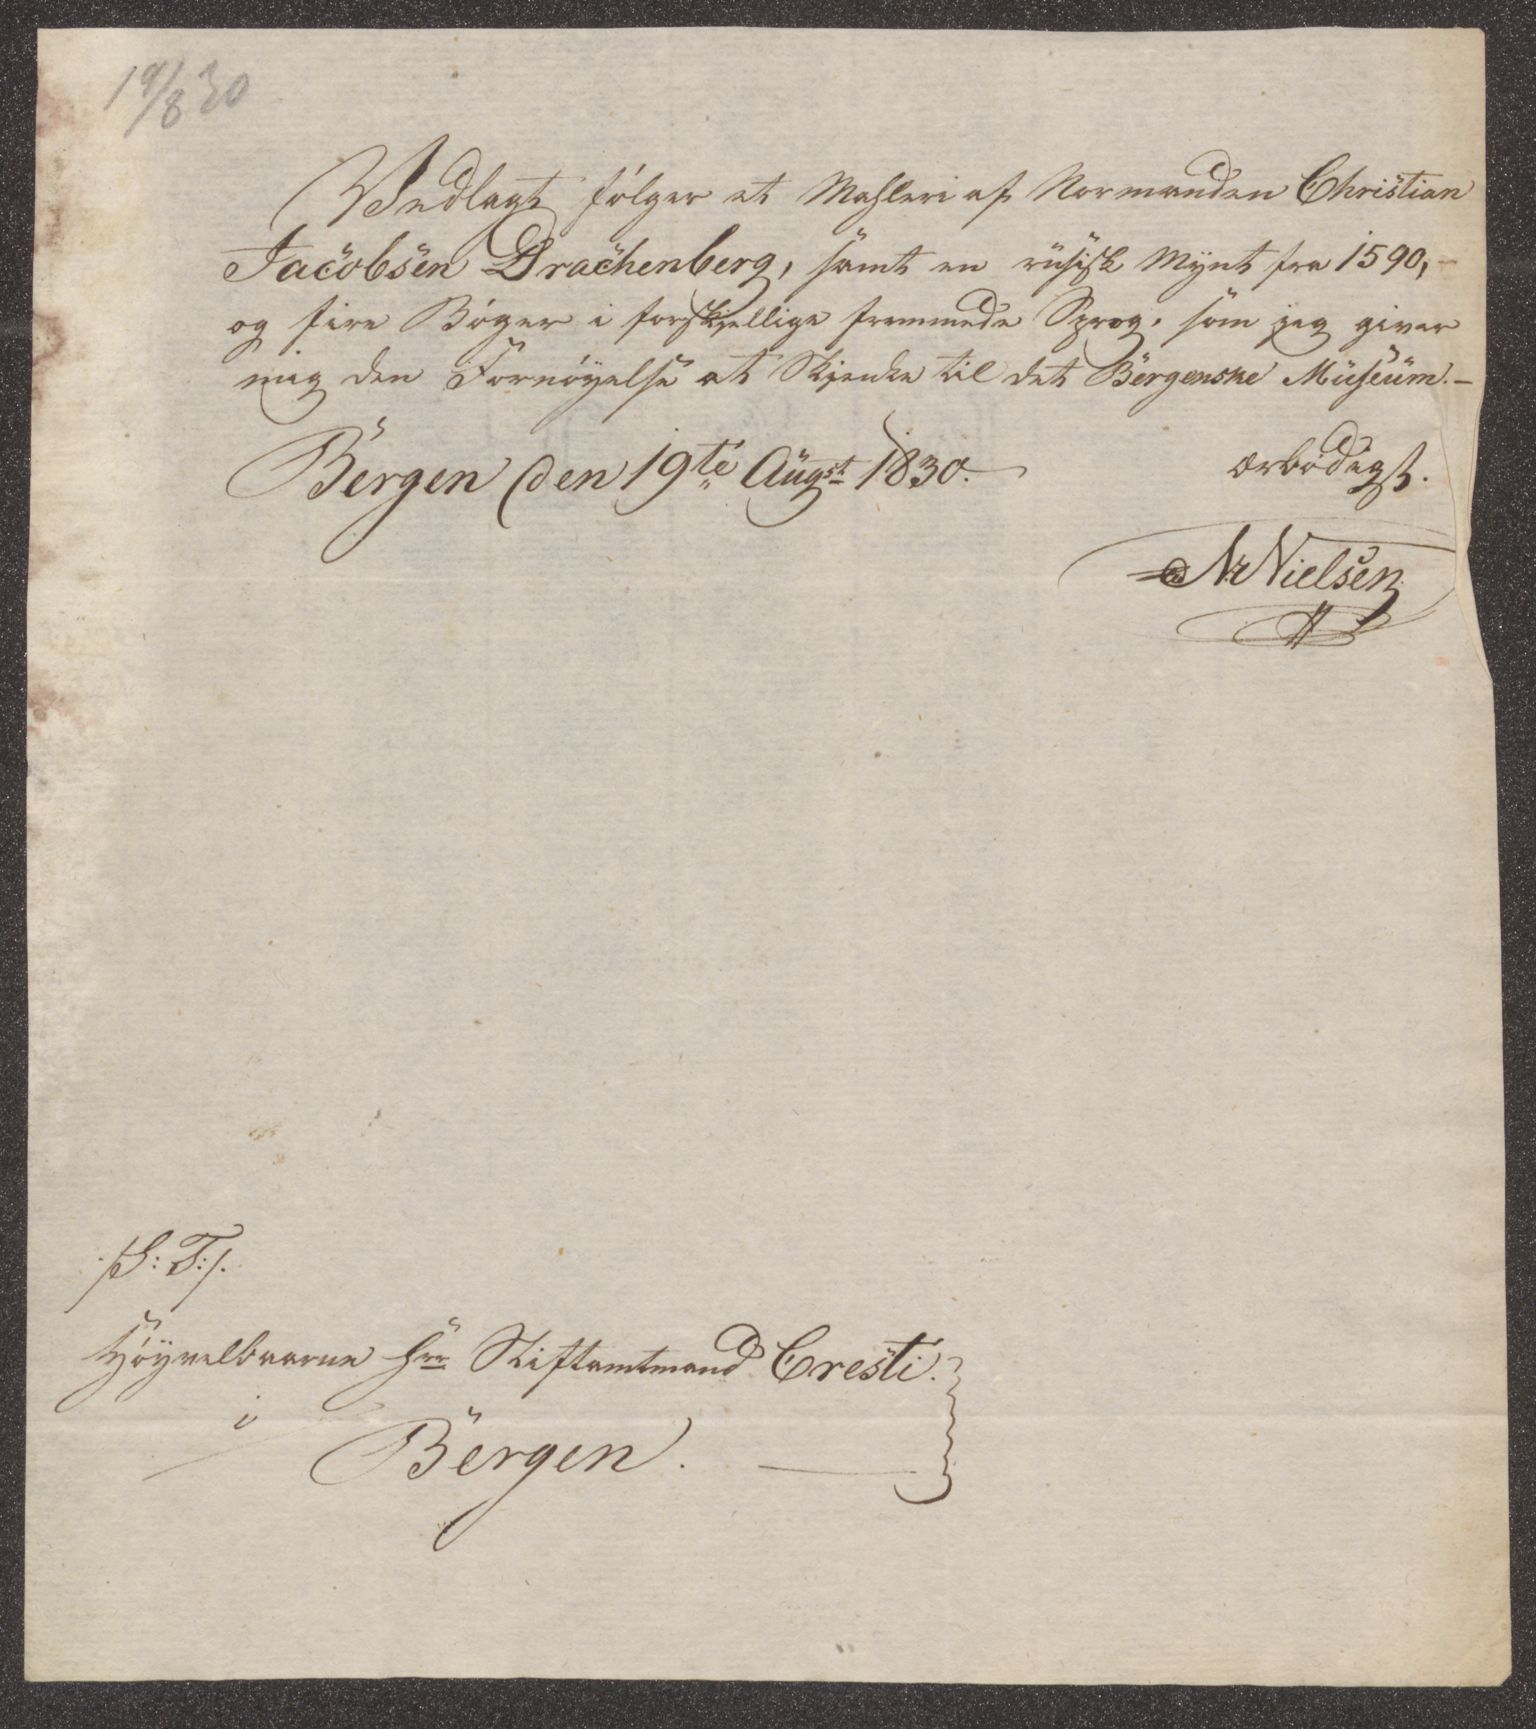 19/8 30
Vedlagt følger et Mahleri af Normanden Christian
Jacobsen Drachenberg, samt en rusisk Mynt fra 1590,-
og fire Bøger i forskjellige fremmede Sprog, som jeg giver
mig den Fornøyelse at Skjenke til det Bergenske Museum.-
Bergen den 19te Augst 1830.
ærbødigst.
Nielsen
/S: T:/.
Høyvelbaarne Hrr Stiftamtmand Cresti.
i
Bergen.